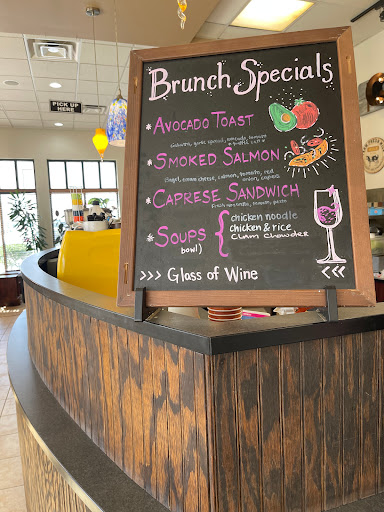 PICK UP
HERE
Brunch Specials
* AVOCADO TOAST
* SMOKED SALMON
Bagel, cream cheese, salmon, tomato, red
onion, capers
* CAPRESE SANDWICH
Fresh mozzarella, tomato, pesto
* SOUPS { chicken noodle
chicken & rice
Clam Chowder
bowl)
>>> Glass of Wine <<